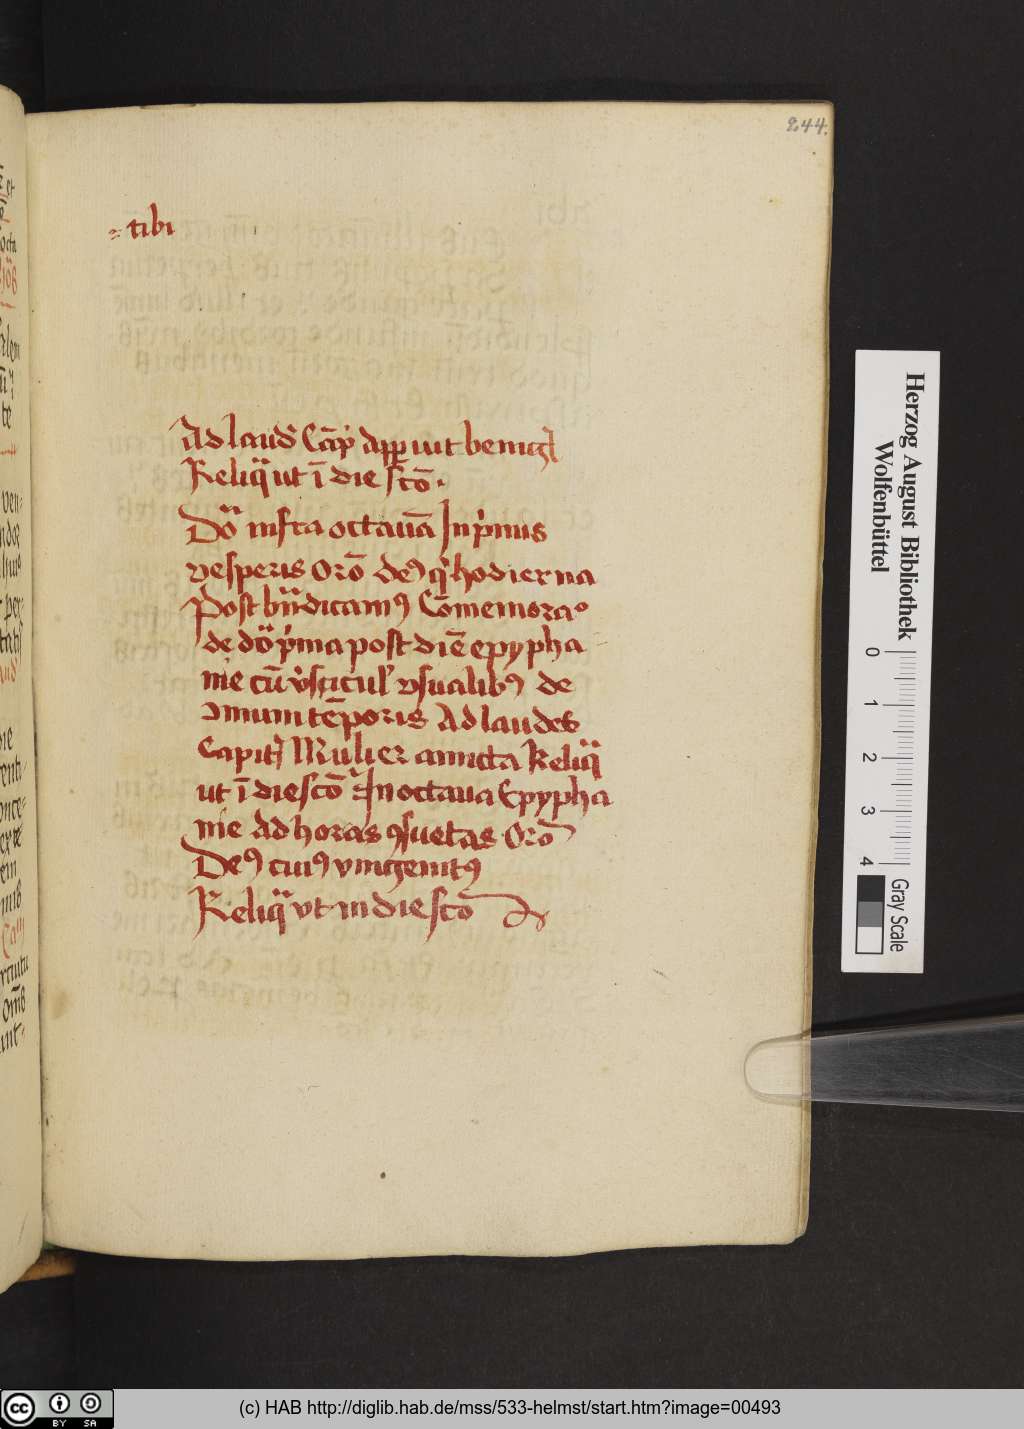 244.
tibi
Ad laud Cap̄ Apparuit benig
Reliq̄ ut ī die sc̄o.
Dō infra octauā In p̄mis
vesperis Orō de9 q hodierna
Post bn̄dicam9 Cōmemora
de dō p̄ma post diē epypha
nie cū v̓sicul vsualib9 de
muni tēporis Ad laudes
Capit Mulier amicta Reliq̄
ut ī die sc̄o In octaua Epypha
nie Ad horas 9suetas Orō
De9 cui9 vnigenit9
Reliq̄ vt in die sc̄o
Herzog August Bibliothek
Wolfenbüttel
0 1 2 3 4
Gray Scale
cc BY SA
(c) HAB http://diglib.hab.de/mss/533-helmst/start.htm?image=00493